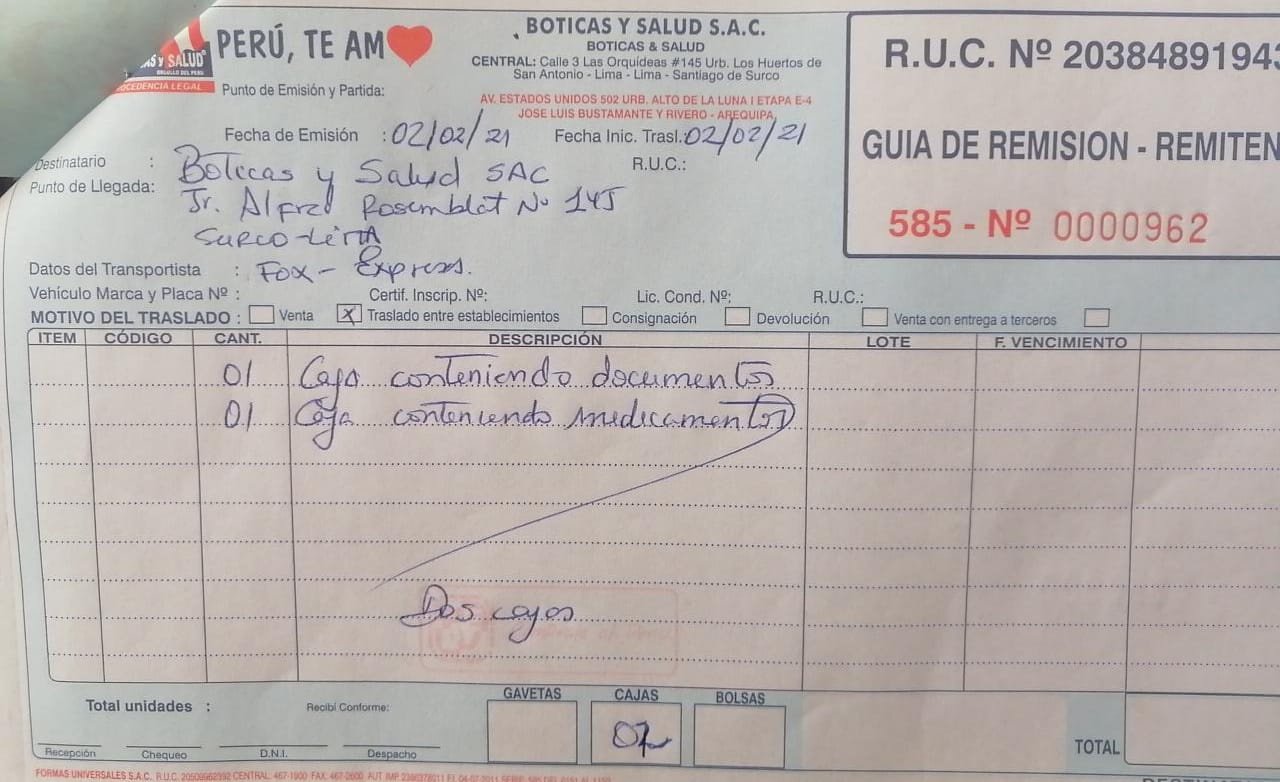 PERÚ, TE AM
AS Y SALUD
ORGULLO DEL PERÚ
OCEDENCIA LEGAL
BOTICAS Y SALUD S.A.C.
BOTICAS & SALUD
CENTRAL: Calle 3 Las Orquídeas #145 Urb. Los Huertos de
San Antonio - Lima - Lima - Santiago de Surco
Punto de Emisión y Partida:
AV. ESTADOS UNIDOS 502 URB. ALTO DE LA LUNA I ETAPA E-4
JOSE LUIS BUSTAMANTE Y RIVERO - AREQUIPA
R.U.C. Nº 2038489194
GUIA DE REMISION - REMITEN
585 - Nº 0000962
Fecha de Emisión : 02/02/21 Fecha Inic. Trasl.: 02/02/21
Destinatario : Boticas y Salud SAC R.U.C.:
Punto de Llegada: Jr. Alfred Rosemblat No 145
Surco-Lima
Datos del Transportista : Fox - Express.
Vehículo Marca y Placa Nº : Certif. Inscrip. Nº: Lic. Cond. Nº: R.U.C.:
MOTIVO DEL TRASLADO : Venta X Traslado entre establecimientos Consignación Devolución Venta con entrega a terceros
ITEM CÓDIGO CANT. DESCRIPCIÓN LOTE F. VENCIMIENTO
01 Caja conteniendo documentos
01 Caja conteniendo medicamentos
Dos cajas
GAVETAS CAJAS BOLSAS
Total unidades : Recibí Conforme: 02
Recepción Chequeo D.N.I. Despacho TOTAL
FORMAS UNIVERSALES S.A.C. R.U.C. 20509962392 CENTRAL 467-1900 FAX 467-2600